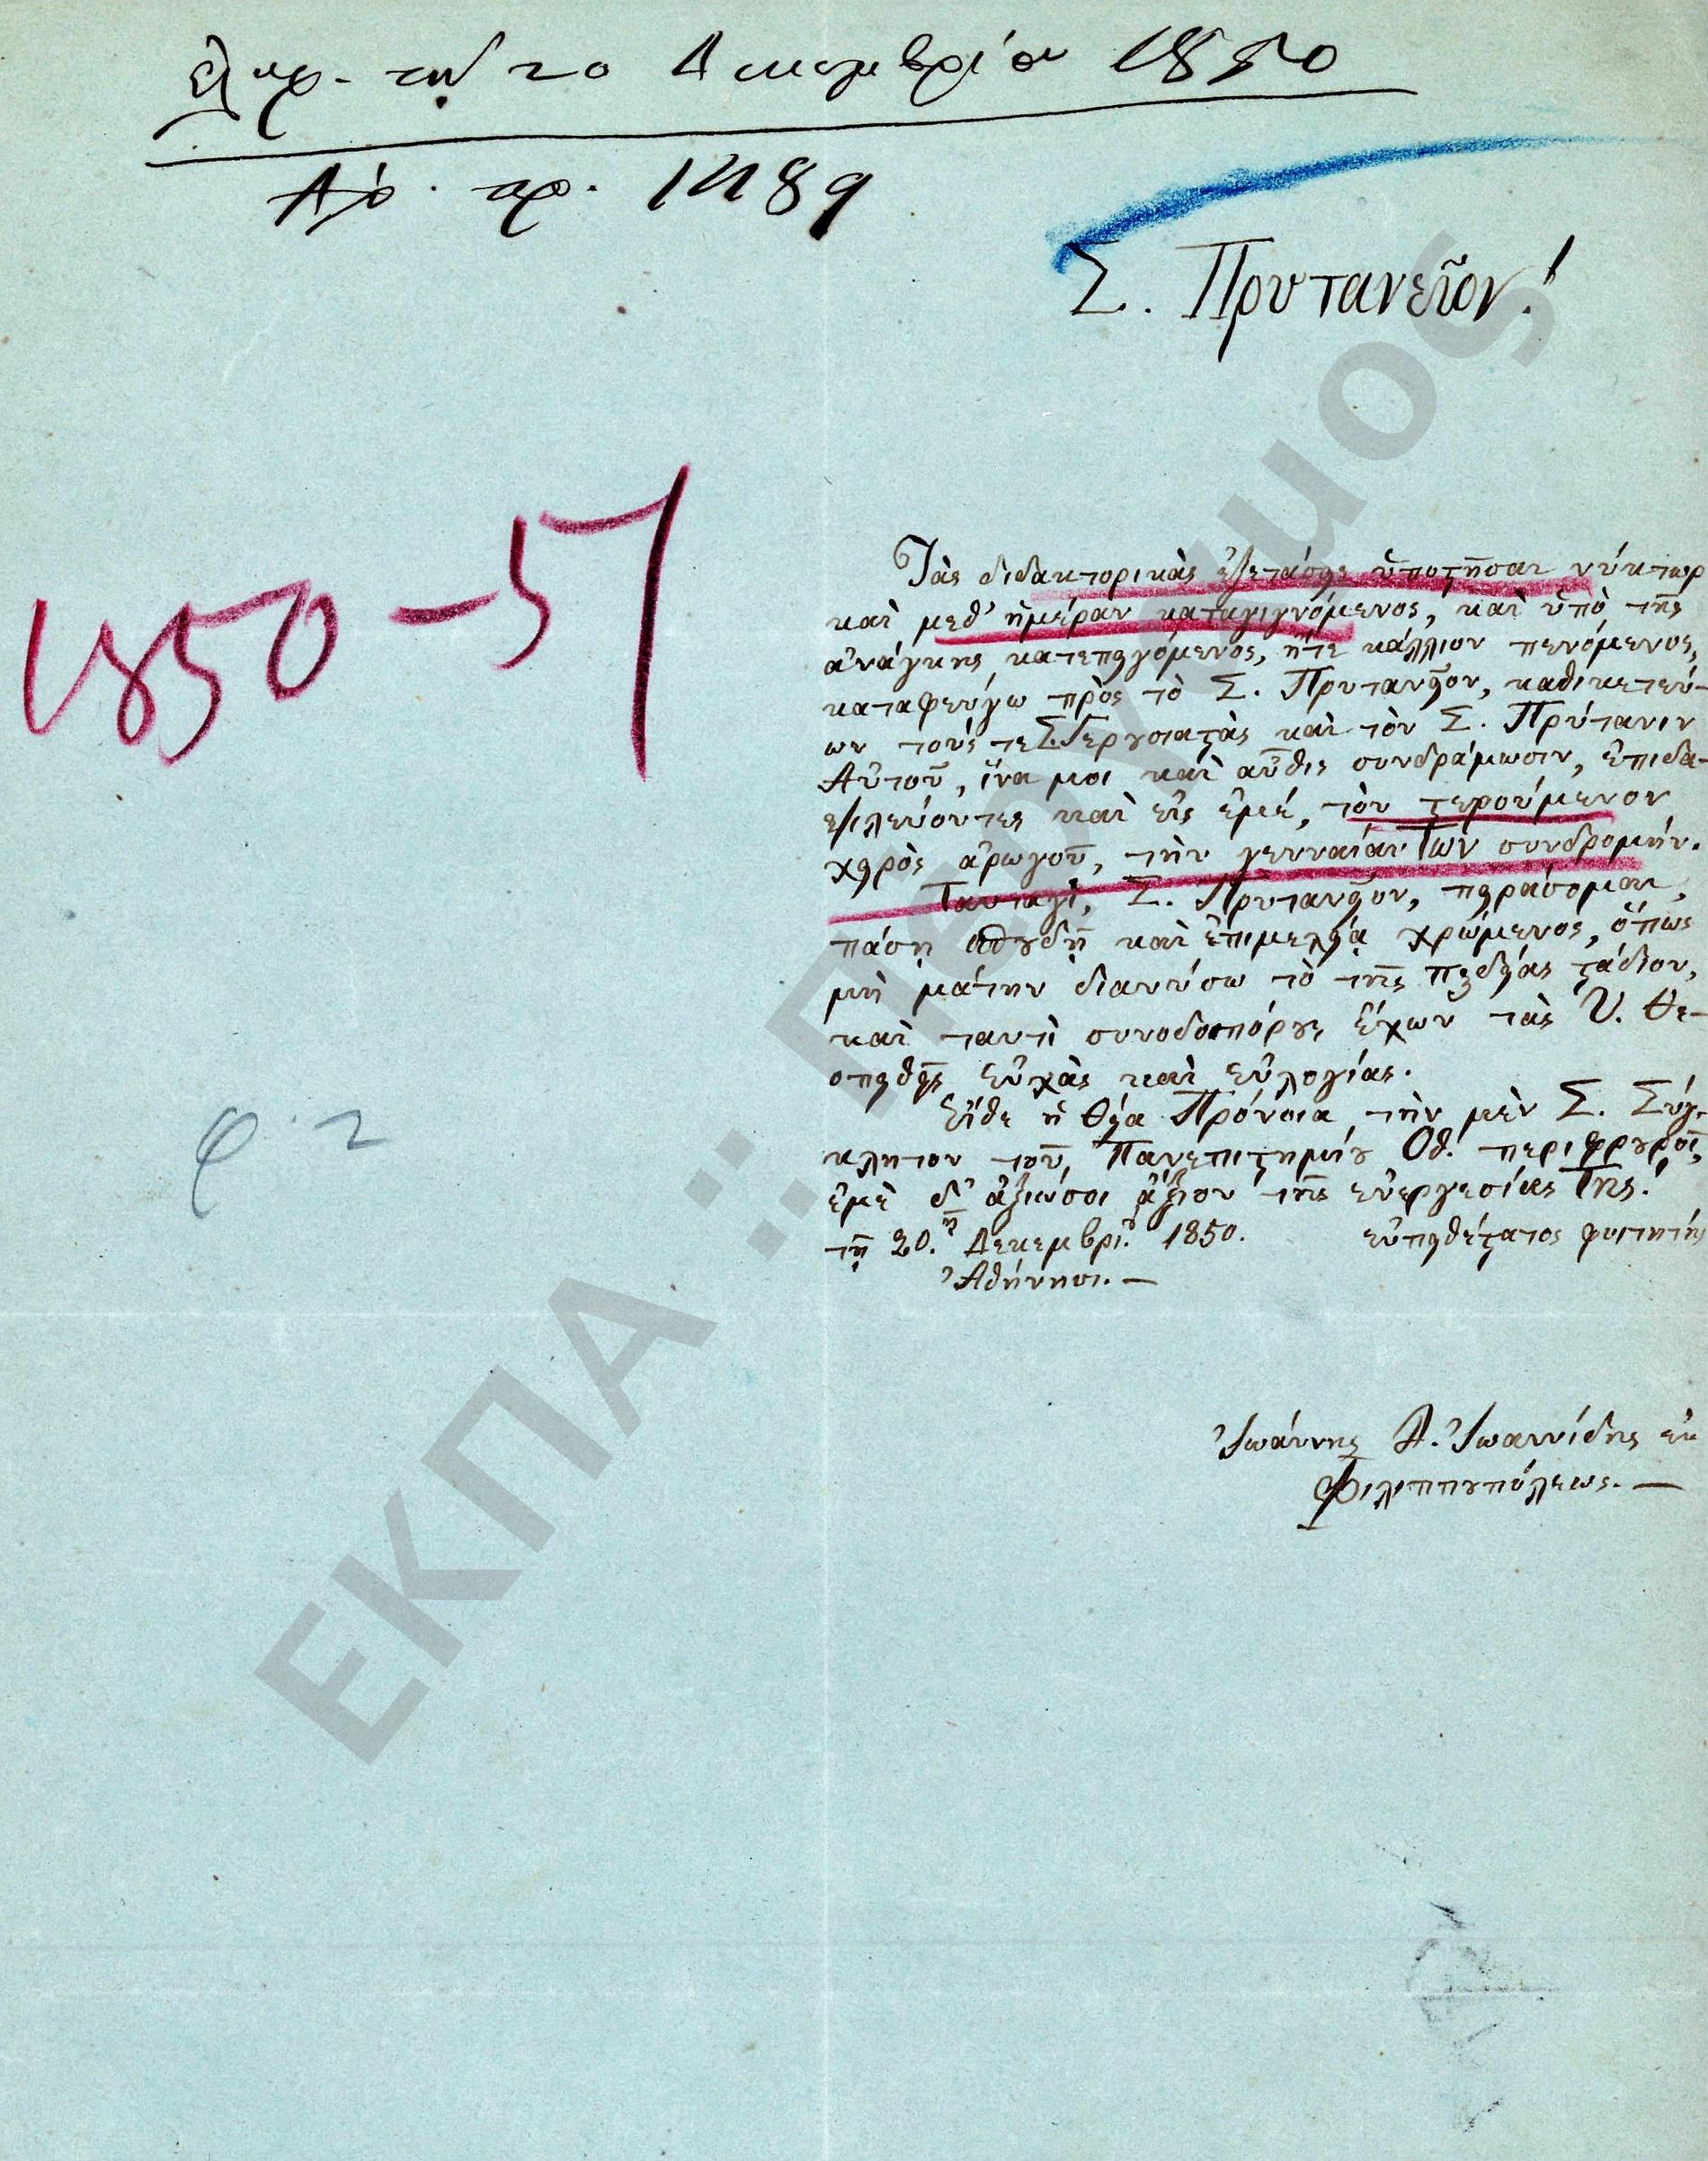 ἐλήφ. τὴν 20 Δεκεμβρίου 1850
Ἀρ. πρ. 1489
Σ. Πρυτανεῖον!
1850-51
Τὰς διδακτορικὰς ἐξετάσεις ὑποστῆσαι νύκτωρ
καὶ μεθ' ἡμέραν καταγιγνόμενος, καὶ ὑπὸ τῆς
ἀνάγκης κατεπειγόμενος, ἤτε κάλλιον πενόμενος,
καταφεύγω πρὸς τὸ Σ. Πρυτανεῖον, καθικετεύ-
ων τούς τε Σ. Γερουσιαστὰς καὶ τὸν Σ. Πρύτανιν
Αὐτοῦ, ἵνα μοι καὶ αὖθις συνδράμωσιν, ἐπιδα-
ψιλεύοντες καὶ εἰς ἐμέ, τὸν στερούμενον
χειρὸς ἀρωγοῦ, τὴν γενναίαν Των συνδρομήν.
Σ. Πρυτανεῖον, πειράσομαι,
πάσῃ σπουδῇ καὶ ἐπιμελείᾳ χρώμενος, ὅπως
μὴ μάτην διανύσω τὸ τῆς παιδείας στάδιον,
καὶ ταυτὶ συνοδοιπόρους ἔχων τὰς Ὑ. θε-
σπειθεῖς εὐχὰς καὶ εὐλογίας.
Εἴθε ἡ θεία Πρόνοια τὴν μὲν Σ. Σύγ-
κλητον τοῦ Πανεπιστημίου Ὀθ. περιφρουροῖ,
ἐμὲ δ' ἀξιώσοι ἄξιον τῆς εὐεργεσίας Της!
τῇ 20.ῃ Δεκεμβρί. 1850. εὐπειθέστατος φοιτητής
Ἀθήνησι.—
φ. 2
Ἰωάννης Α. Ἰωαννίδης ἐκ
Φιλιππουπόλεως.—
ΕΚΠΑ :: Πέργαμος